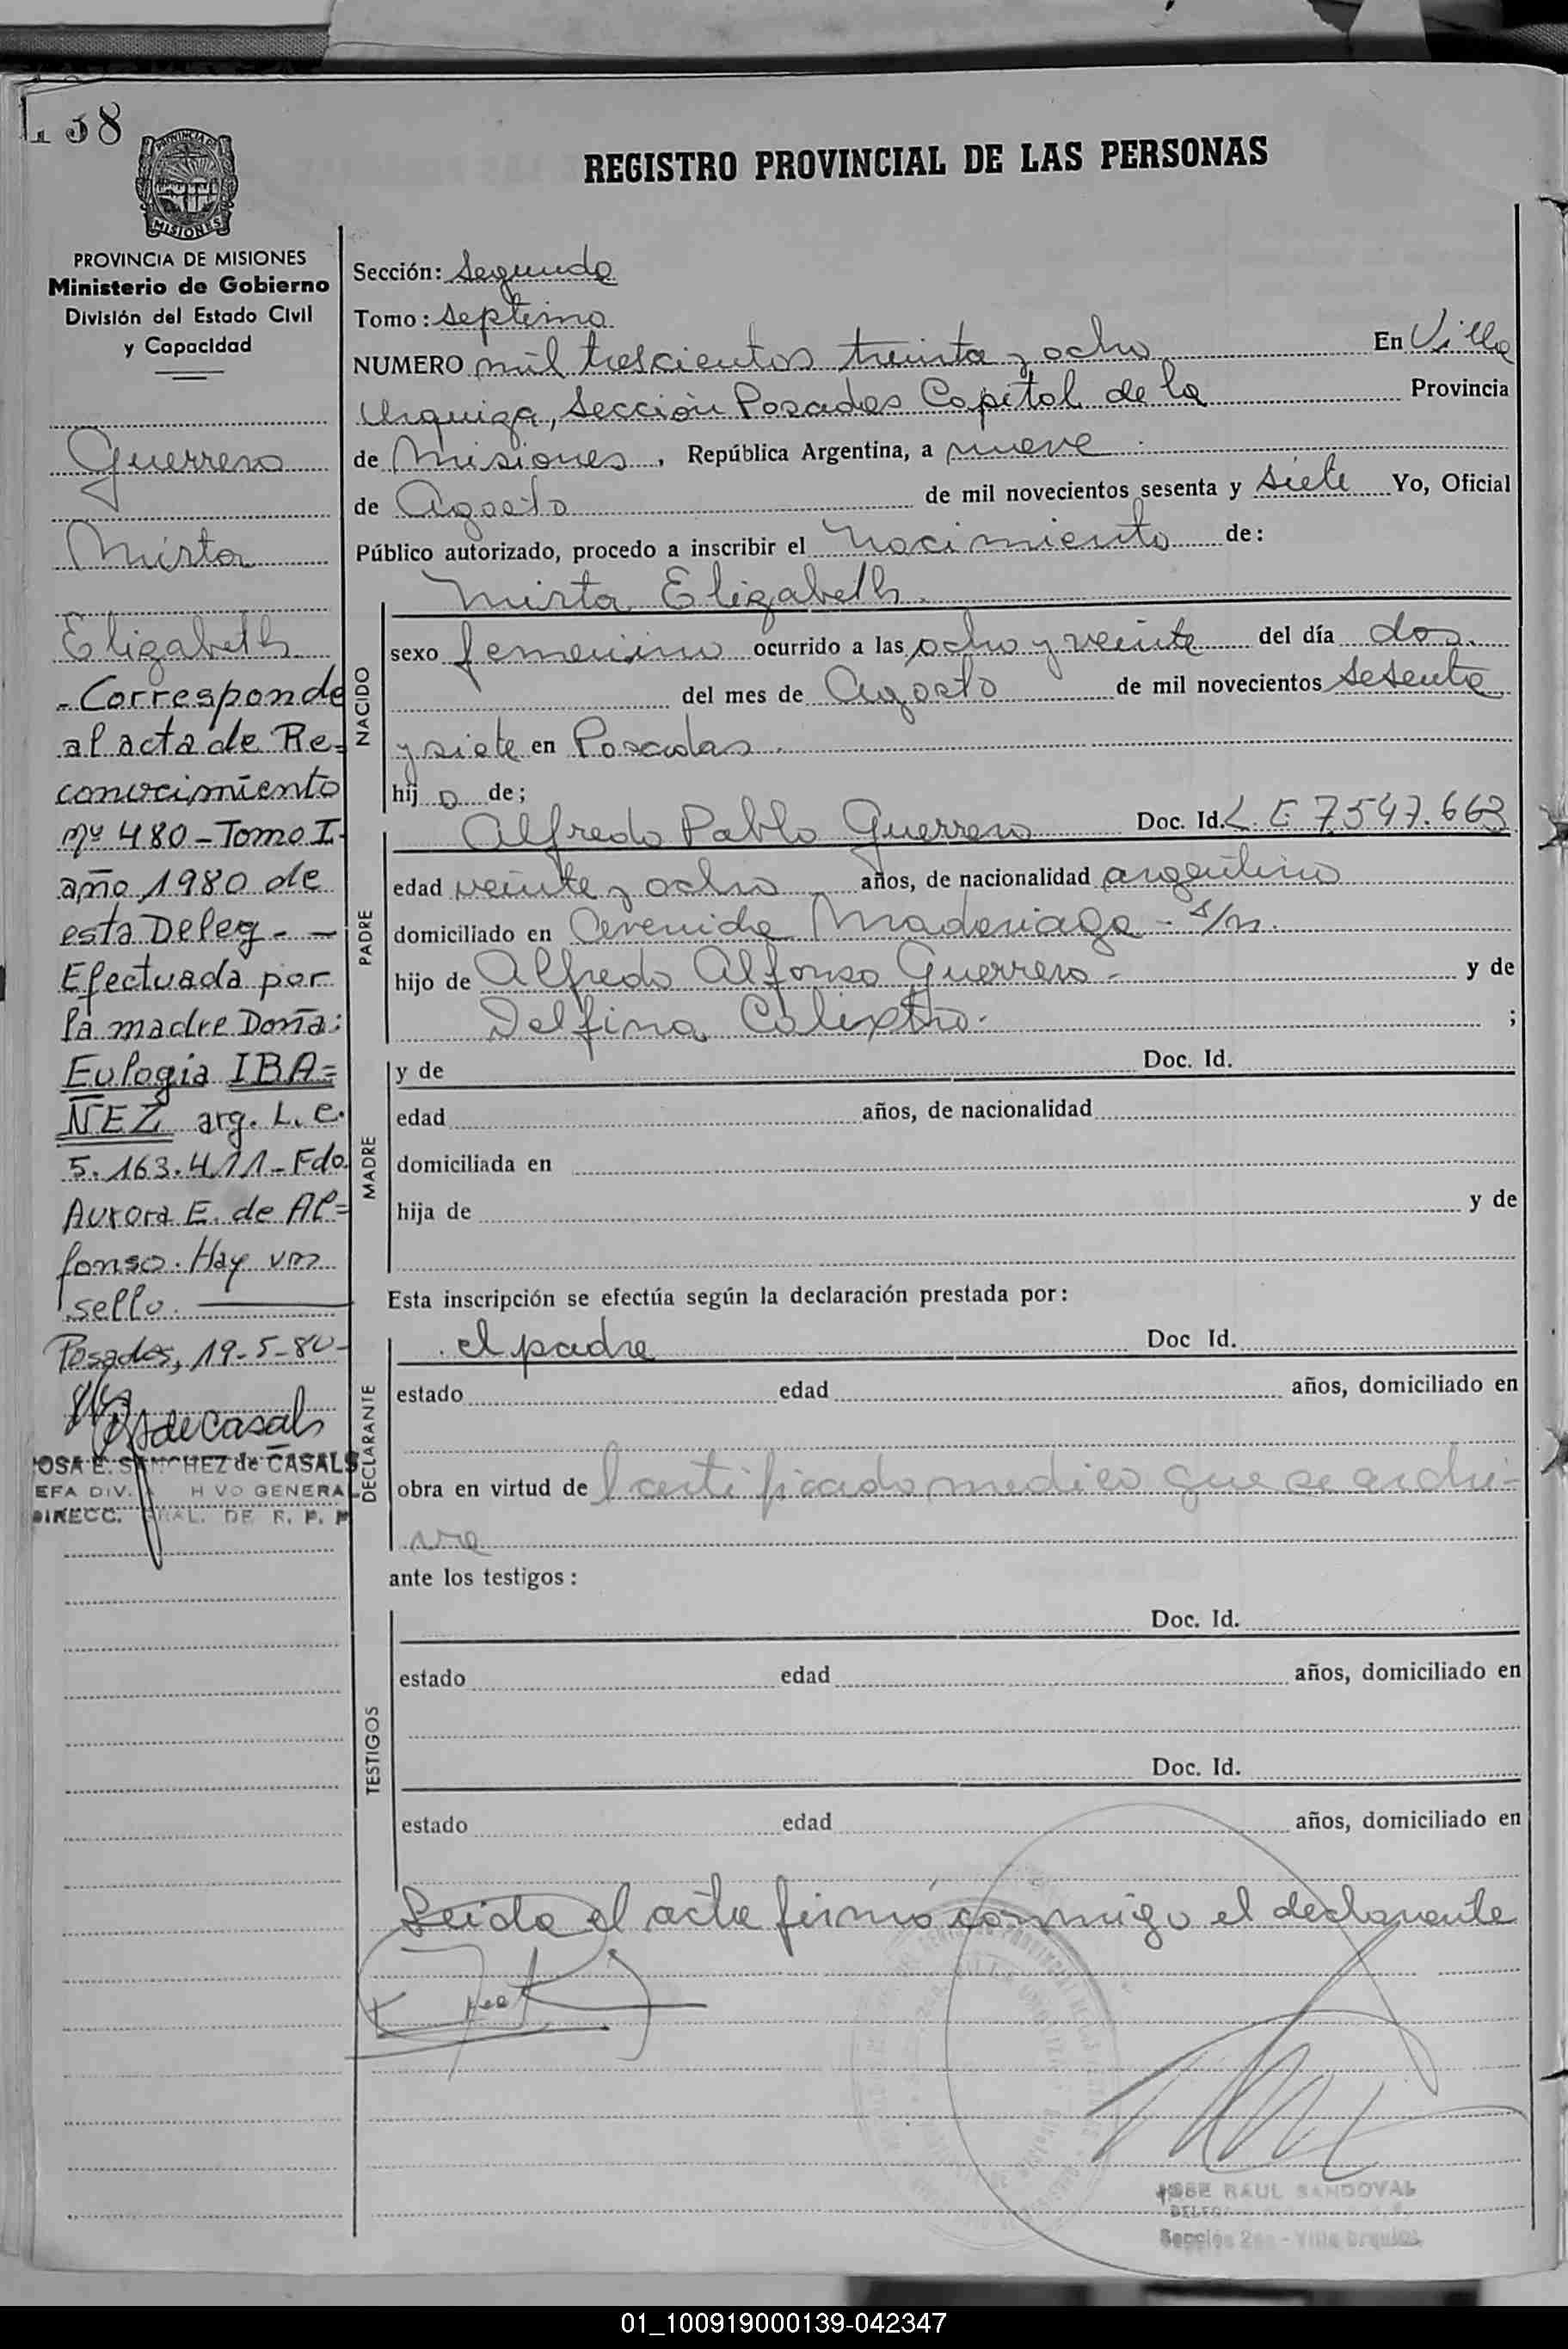 1338
PROVINCIA DE MISIONES
Ministerio de Gobierno
División del Estado Civil
y Capacidad
Guerrero
Mirta
Elizabeth
- Corresponde
al acta de Re=
conocimiento
Nº 480 - Tomo I-
año 1980 de
esta Deleg - -
Efectuada por
la madre Doña:
Eulogia IBA=
ÑEZ arg. L. e.
5.163.411 - Fdo.
Aurora E. de Al=
fonso. Hay un
sello.
Posadas, 19-5-80-
OSA E. SANCHEZ de CASALS
EFA DIV. HIVO GENERAL
DIRECC. GRAL. DE R. P. P
REGISTRO PROVINCIAL DE LAS PERSONAS
Sección: Segunda
Tomo: septimo
NUMERO mil trescientos treinta y ocho En Villa
Urquiza, Sección Posadas Capital de la Provincia
de Misiones, República Argentina, a nueve
de Agosto de mil novecientos sesenta y siete Yo, Oficial
Público autorizado, procedo a inscribir el Nacimiento de:
Mirta Elizabeth.
NACIDO
sexo femenino ocurrido a las ocho y veinte del día dos
del mes de Agosto de mil novecientos sesenta
y siete en Posadas.
hij a de;
PADRE
Alfredo Pablo Guerrero Doc. Id. L. E 7.547.663
edad veinte y ocho años, de nacionalidad argentino
domiciliado en Avenida Madariaga - s/n.
hijo de Alfredo Alfonso Guerrero - y de
Delfina Calixtro - ;
MADRE
y de Doc. Id.
edad años, de nacionalidad
domiciliada en
hija de y de
Esta inscripción se efectúa según la declaración prestada por:
DECLARANTE
el padre Doc Id.
estado edad años, domiciliado en
obra en virtud de l certificado medico que se archi-
va
ante los testigos:
TESTIGOS
Doc. Id.
estado edad años, domiciliado en
Doc. Id.
estado edad años, domiciliado en
Leida el acta firmó conmigo el declarante
JOSE RAUL SANDOVAL
Sección 2da - Villa Urquiza
01_100919000139-042347